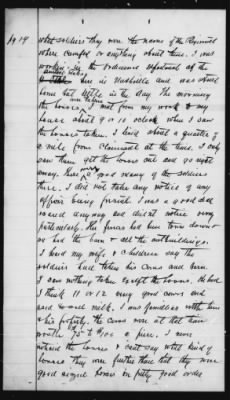 pg 19
what soldiers they were the name of the Regiment
where camped or anything about them. I was
working in the ordinance department of the
United States here in Nashville and was about
home but little in the day. The morning
the horses were taken I met from my work to my
house about 9 or 10 o'clock when I saw
the horses taken. I lived about a quarter of
a mile from Claimant at the time. I only
saw them get the horses out and go right
away. There was many of the soldiers
there. I did not take any notice of any
officer being present. I was a good deal
scared any way and didn't notice very
particularly. The fences had been torn down
as had the barn & all the outbuildings.
I heard my wife & children say the
soldiers had taken his cows and corn.
I saw nothing taken except the horses. He had
I think 11 or 12 very good cows and
sold milk. I was familiar with them
The cows were at that time
worth 75 to a piece. I never
noticed the horses & can't say what kind of
horses they were further than that they were
good sized horses in pretty good order